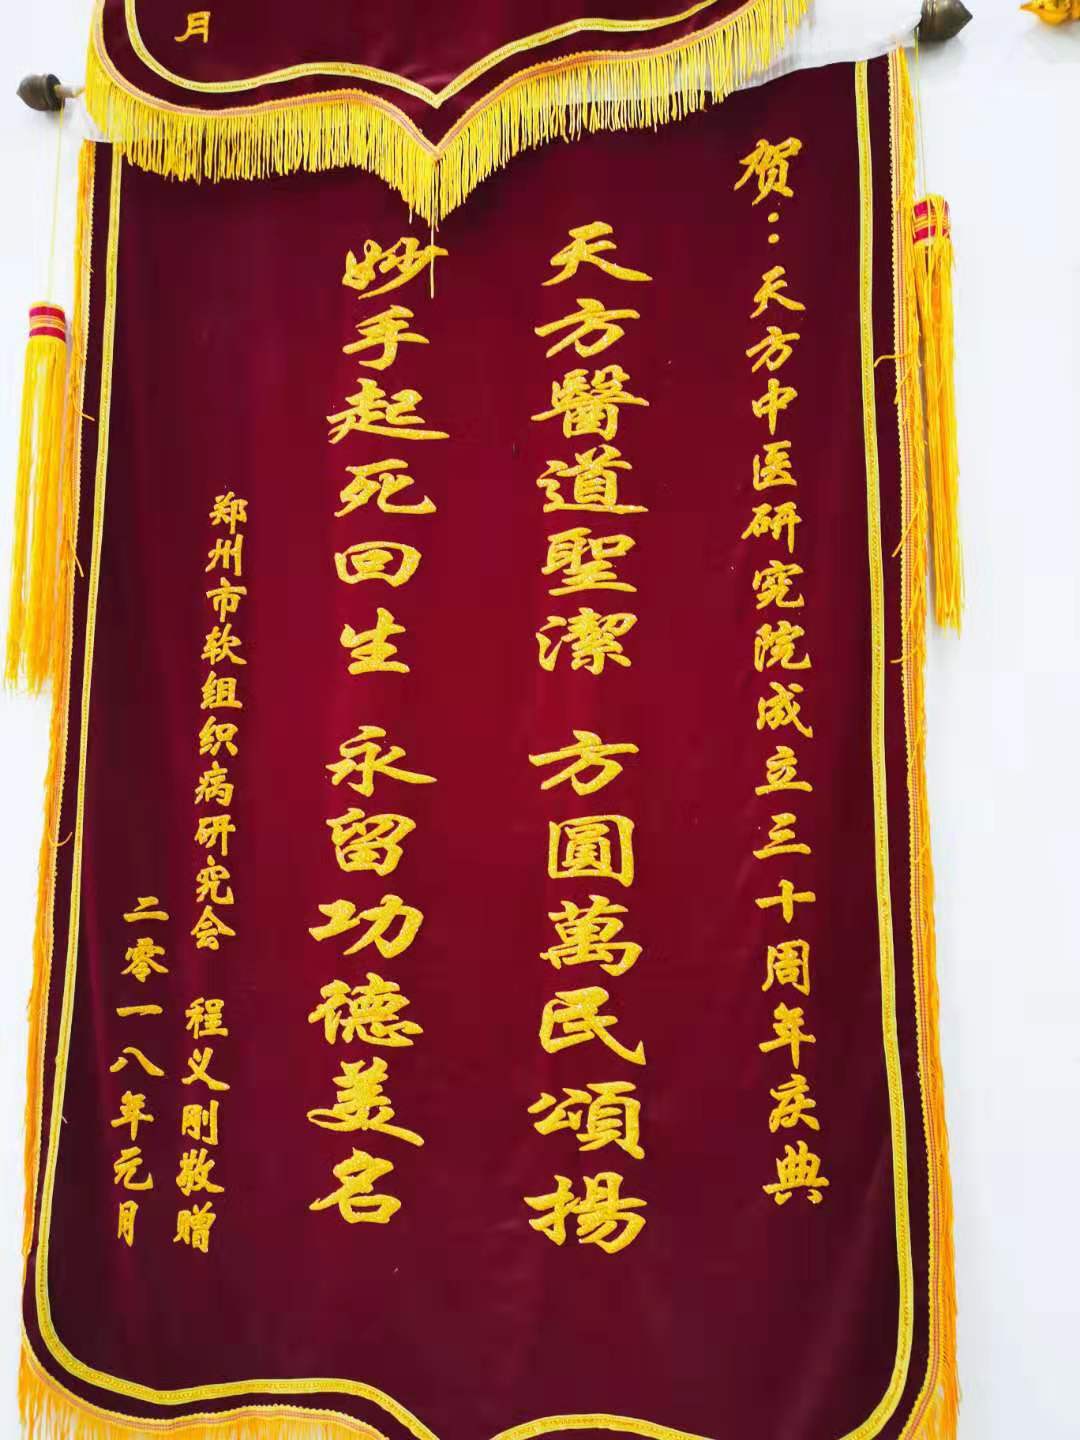 月
贺：天方中医研究院成立三十周年庆典
天方醫道聖潔 方圓萬民頌揚
妙手起死回生 永留功德美名
郑州市软组织病研究会 程义刚敬赠
二零一八年元月